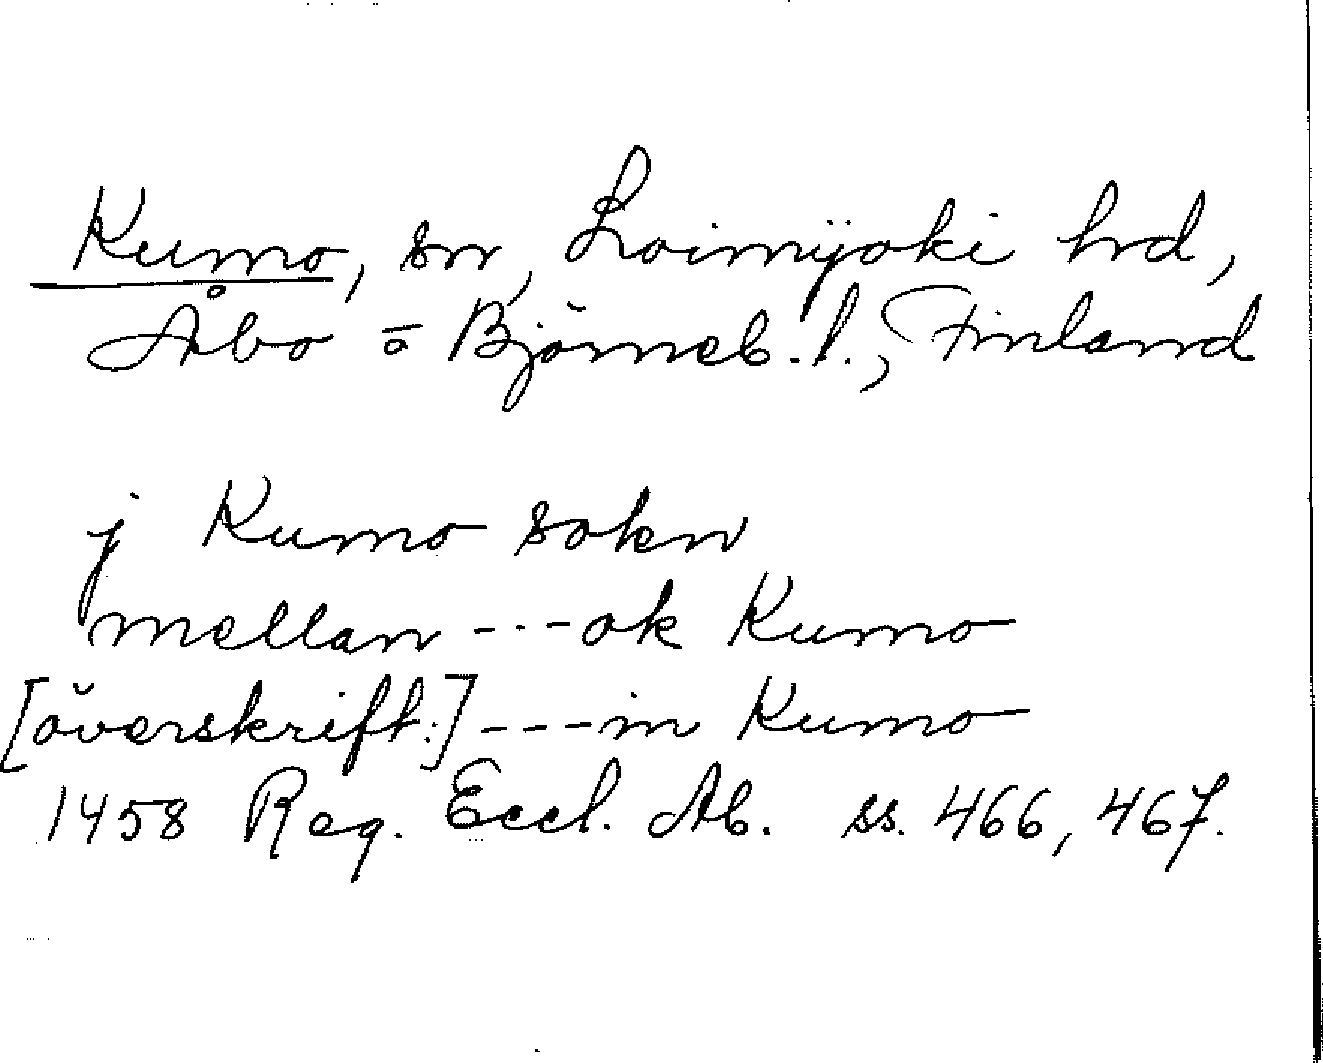 Kumo, sn, Loimijoki hrd,
Åbo o Björneb. l., Finland
j Kumo sokn
mellan - - - ok Kumo
[överskift:] - - - in Kumo
1458 Reg. Eccl. Ab. ss. 466, 467.